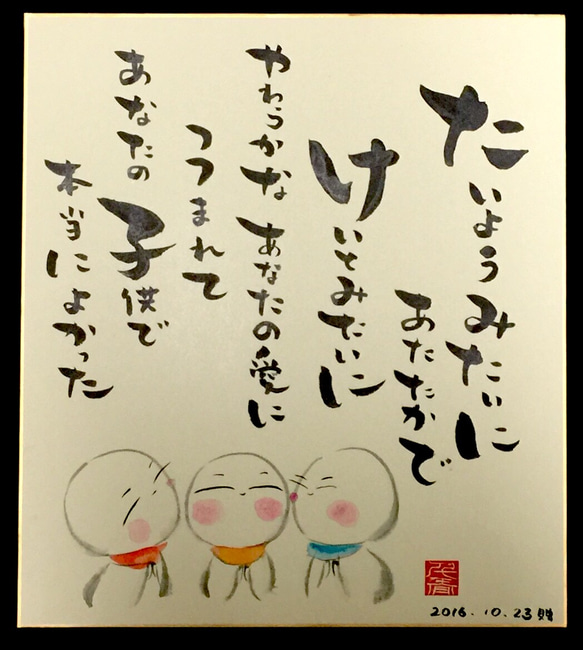 たいようみたいに
あたたかで
けいとみたいに
やわらかなあなたの愛に
つつまれて
あなたの子供で
本当によかった
2016.10.23